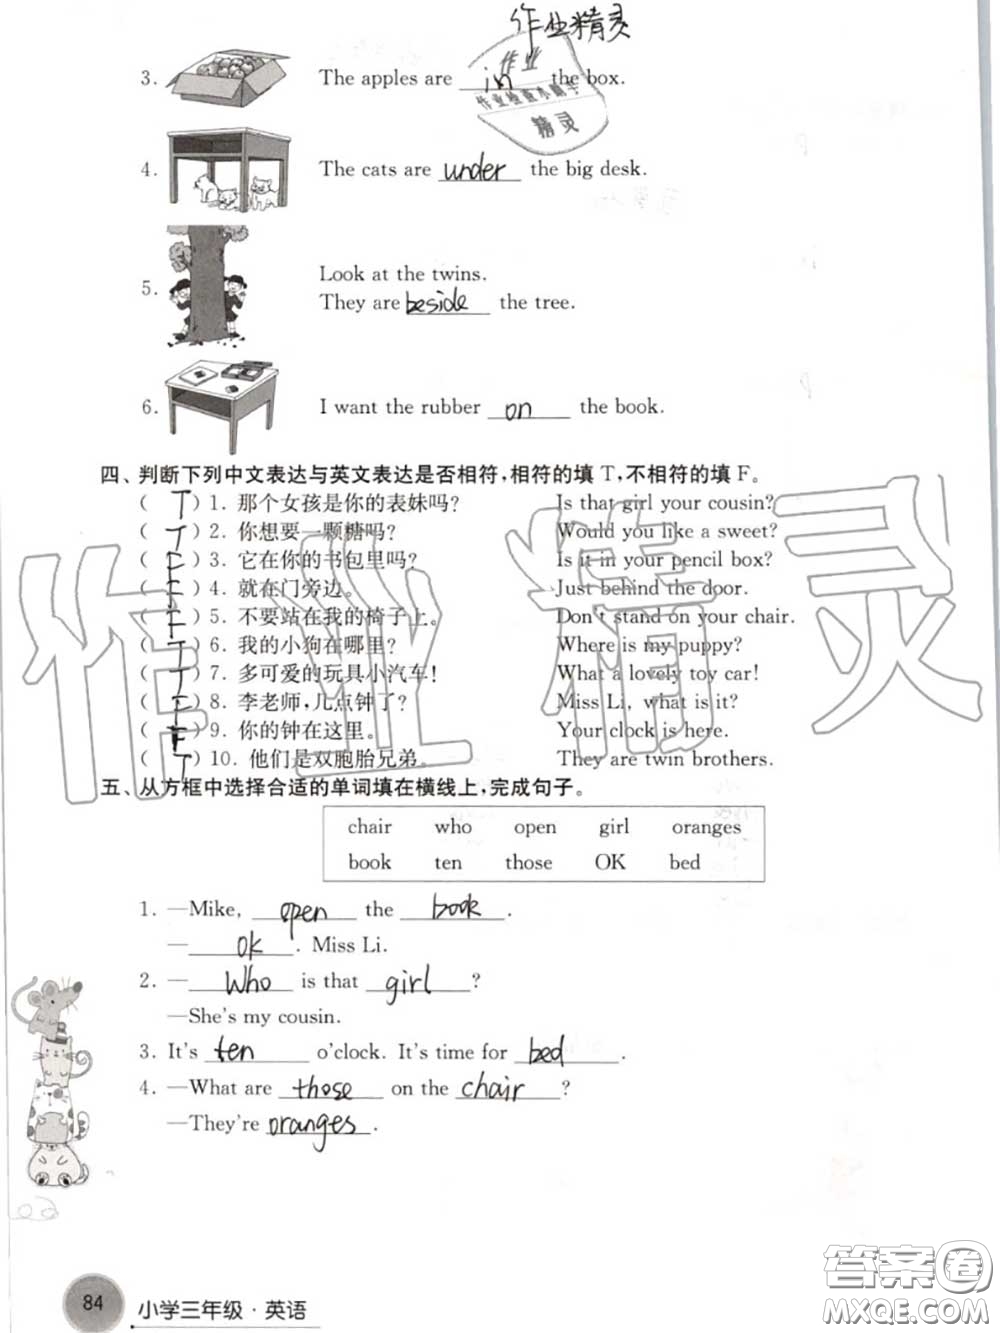 作业精灵
作业
作业检查小助手
精灵
3. The apples are in the box.
4. The cats are under the big desk.
5. Look at the twins.
They are beside the tree.
6. I want the rubber on the book.
四、判断下列中文表达与英文表达是否相符,相符的填 T,不相符的填 F。
( T ) 1. 那个女孩是你的表妹吗? Is that girl your cousin?
( T ) 2. 你想要一颗糖吗? Would you like a sweet?
( F ) 3. 它在你的书包里吗? Is it in your pencil box?
( F ) 4. 就在门旁边。 Just behind the door.
( F ) 5. 不要站在我的椅子上。 Don't stand on your chair.
( T ) 6. 我的小狗在哪里? Where is my puppy?
( T ) 7. 多可爱的玩具小汽车! What a lovely toy car!
( F ) 8. 李老师,几点钟了? Miss Li, what is it?
( F ) 9. 你的钟在这里。 Your clock is here.
( T ) 10. 他们是双胞胎兄弟。 They are twin brothers.
作业精灵
五、从方框中选择合适的单词填在横线上,完成句子。
chair who open girl oranges
book ten those OK bed
1. —Mike, open the book.
—OK. Miss Li.
2. —Who is that girl?
—She's my cousin.
3. It's ten o'clock. It's time for bed.
4. —What are those on the chair?
—They're oranges.
84 小学三年级·英语
答案圈
MXQE.COM